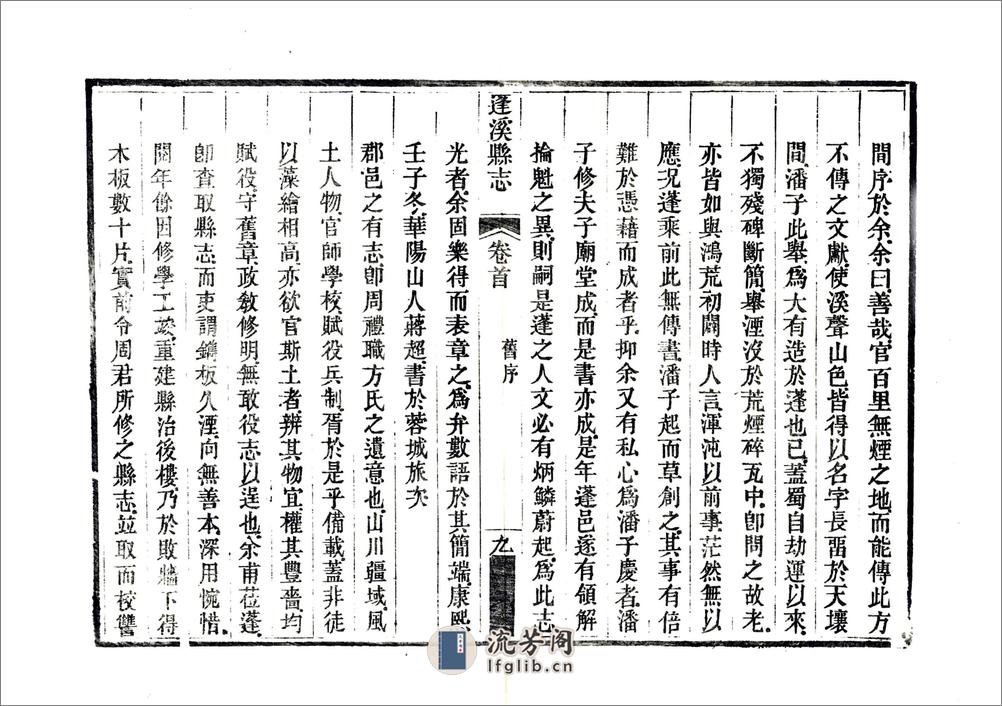 間序於余余曰善哉官百里無煙之地而能傳此方
不傳之文獻使溪聲山色皆得以名字長畱於天壤
間潘子此舉爲大有造於蓬也已蓋蜀自劫運以來
不獨殘碑斷簡舉湮沒於荒煙碎瓦中卽問之故老
亦皆如與鴻荒初闢時人言渾沌以前事茫然無以
應况蓬乘前此無傳書潘子起而草創之其事有倍
難於憑藉而成者乎抑余又有私心爲潘子慶者潘
子修夫子廟堂成而是書亦成是年蓬邑遂有領解
掄魁之異則嗣是蓬之人文必有炳鱗蔚起爲此志
蓬溪縣志 卷首 舊序 九
光者余固樂得而表章之爲弁數語於其簡端康熙
壬子冬華陽山人蔣超書於蓉城旅次
郡邑之有志卽周禮職方氏之遺意也山川疆域風
土人物官師學校賦役兵制胥於是乎備載蓋非徒
以藻繪相高亦欲官斯土者辨其物宜權其豐嗇均
賦役守舊章政敎修明無敢役志以逞也余甫蒞蓬
卽查取縣志而吏謂鐫板久湮向無善本深用惋惜
閱年餘因修學工竣重建縣治後樓乃於敗牆下得
木板數十片實前令周君所修之縣志並取而校讐
流芳阁
lfglib.cn